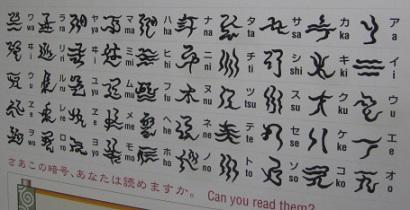 ワ ラ ヤ マ ハ ナ タ サ カ ア
wa ra ya ma ha na ta sa ka a
ヰ リ ヰ ミ ヒ ニ チ シ キ イ
i ri i mi hi ni ti shi ki i
ウ ル ユ ム フ ヌ ツ ス ク ウ
u ru yu mu fu nu tsu su ku u
ヱ レ ヱ メ ヘ ネ テ セ ケ エ
e re e me he ne te se ke e
ヲ ロ ヨ モ ホ ノ ト ソ コ オ
wo ro yo mo ho no to so ko o
さあこの暗号、あなたは読めますか。 Can you read them?